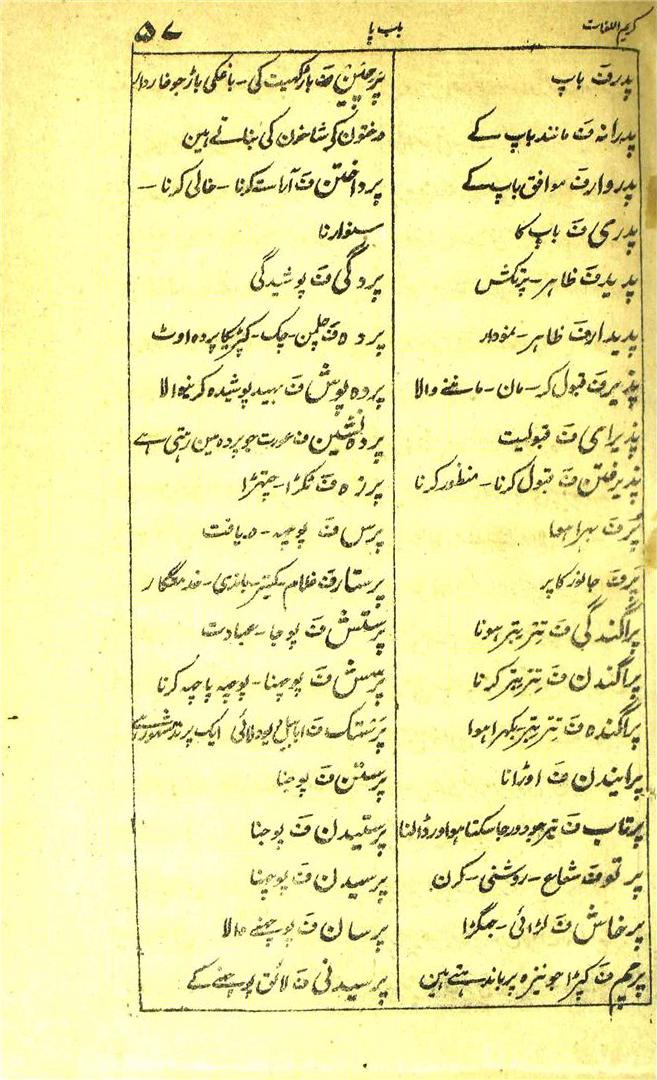 کریم اللغات
باب پا
۵۷
پدر ف باپ
پدرانہ ف مانند باپ کے
پدروار ف موافق باپ کے
پدری ف باپ کا
پدید ف ظاہر۔
پدیدار ف ظاہر۔ نمودار
پذیر ف قبول کر۔ مان۔ ماننے والا
پذیرای ف قبولیت
پذیرفتن ف قبول کرنا۔ منظور کرنا
پُر ف بہرا ہوا
پَر ف جانور کا پر
پراگندگی ف تتر بتر ہونا
پراگندن ف تتر بتر کرنا
پراگندہ ف تتر بتر بکہرا ہوا
پرانیدن ف اوڑانا
پرتاب ف تیر جو دور جا سکتا ہو اور ڈالنا
پرتو ف شعاع۔ روشنی۔ کرن
پرخاش ف لڑائی۔ جہگڑا
پرچم ف کپڑا جو نیزہ پر باندہتے ہین
پرچین ف باڑ کہیت کی۔ باغکی باڑ جو خاردار
درختون کی شاخون کی بناتے ہین
پرداختن ف آراستہ کرنا۔ خالی کرنا۔
سنوارنا
پردگی ف پوشیدگی
پردہ ف چلمن۔ چک۔ کپڑیکا پردہ اوٹ
پردہ پوش ف بہید پوشیدہ کرنیوالا
پردہ نشین ف عورت جو پردہ مین رہتی ہے
پرزہ ف ٹکڑا۔ چتھڑا
پرس ف پوچہہ۔ دریافت
پرستار ف غلام۔ کنیز۔ باندی۔ خدمتگار
پرستش ف پوجا۔ عبادت
پرسش ف پوچہنا۔ پوچہہ پاچہہ کرنا
پرستک ف ابابیل ایک پرند مشہور ہے
پرستن ف پوجنا
پرستیدن ف پوجنا
پرسیدن ف پوچہنا
پرسان ف پوچہنے والا
پرسیدنی ف لائق پوچہنے کے